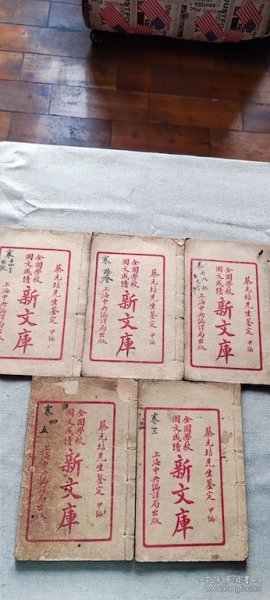 蔡元培先生鉴定 甲编
全國學校
國文成績
新文库
上海中央編譯局出版
蔡元培先生鉴定 甲编
全國學校
國文成績
新文庫
上海中央編譯局出版
蔡元培先生鉴定 甲编
全國學校
國文成績
新文庫
上海中央編譯局出版
蔡元培先生鉴定 甲编
全國學校
國文成績
新文庫
上海中央編譯局出版
卷四
五
蔡元培先生鉴定 甲编
全國學校
國文成績
新文庫
上海中央編譯局出版
卷三